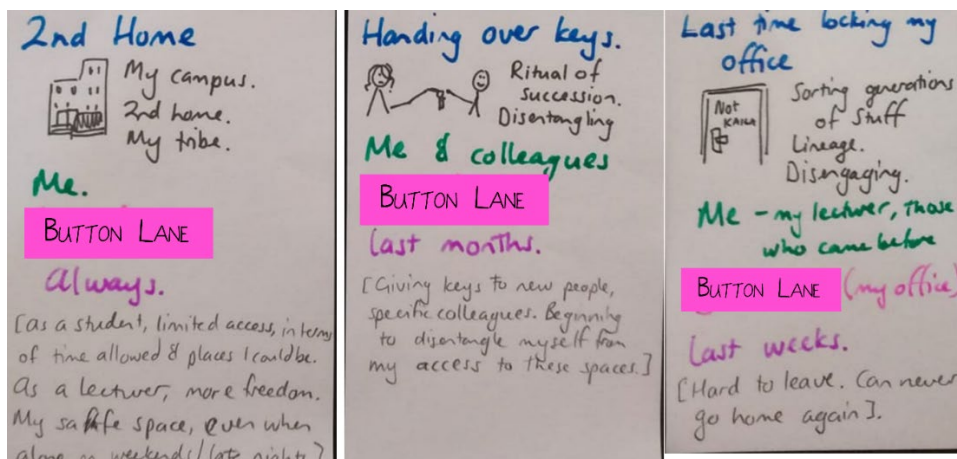 2nd Home
My campus.
2nd home.
My tribe.
Me.
BUTTON LANE
Always.
[as a student, limited access, in terms
of time allowed & places I could be.
As a lecturer, more freedom.
My safe space, even when
alone on weekends/late nights]
Handing over keys.
Ritual of
succession.
Disentangling
Me & colleagues
BUTTON LANE
last months.
[Giving keys to new people,
specific colleagues. Beginning
to disentangle myself from
my access to these spaces.]
Last time locking my
office
Not
Sorting generations
of stuff
Lineage.
Disengaging.
Me - my lecturer, those
who came before
BUTTON LANE (my office)
Last weeks.
[Hard to leave. Can never
go home again].